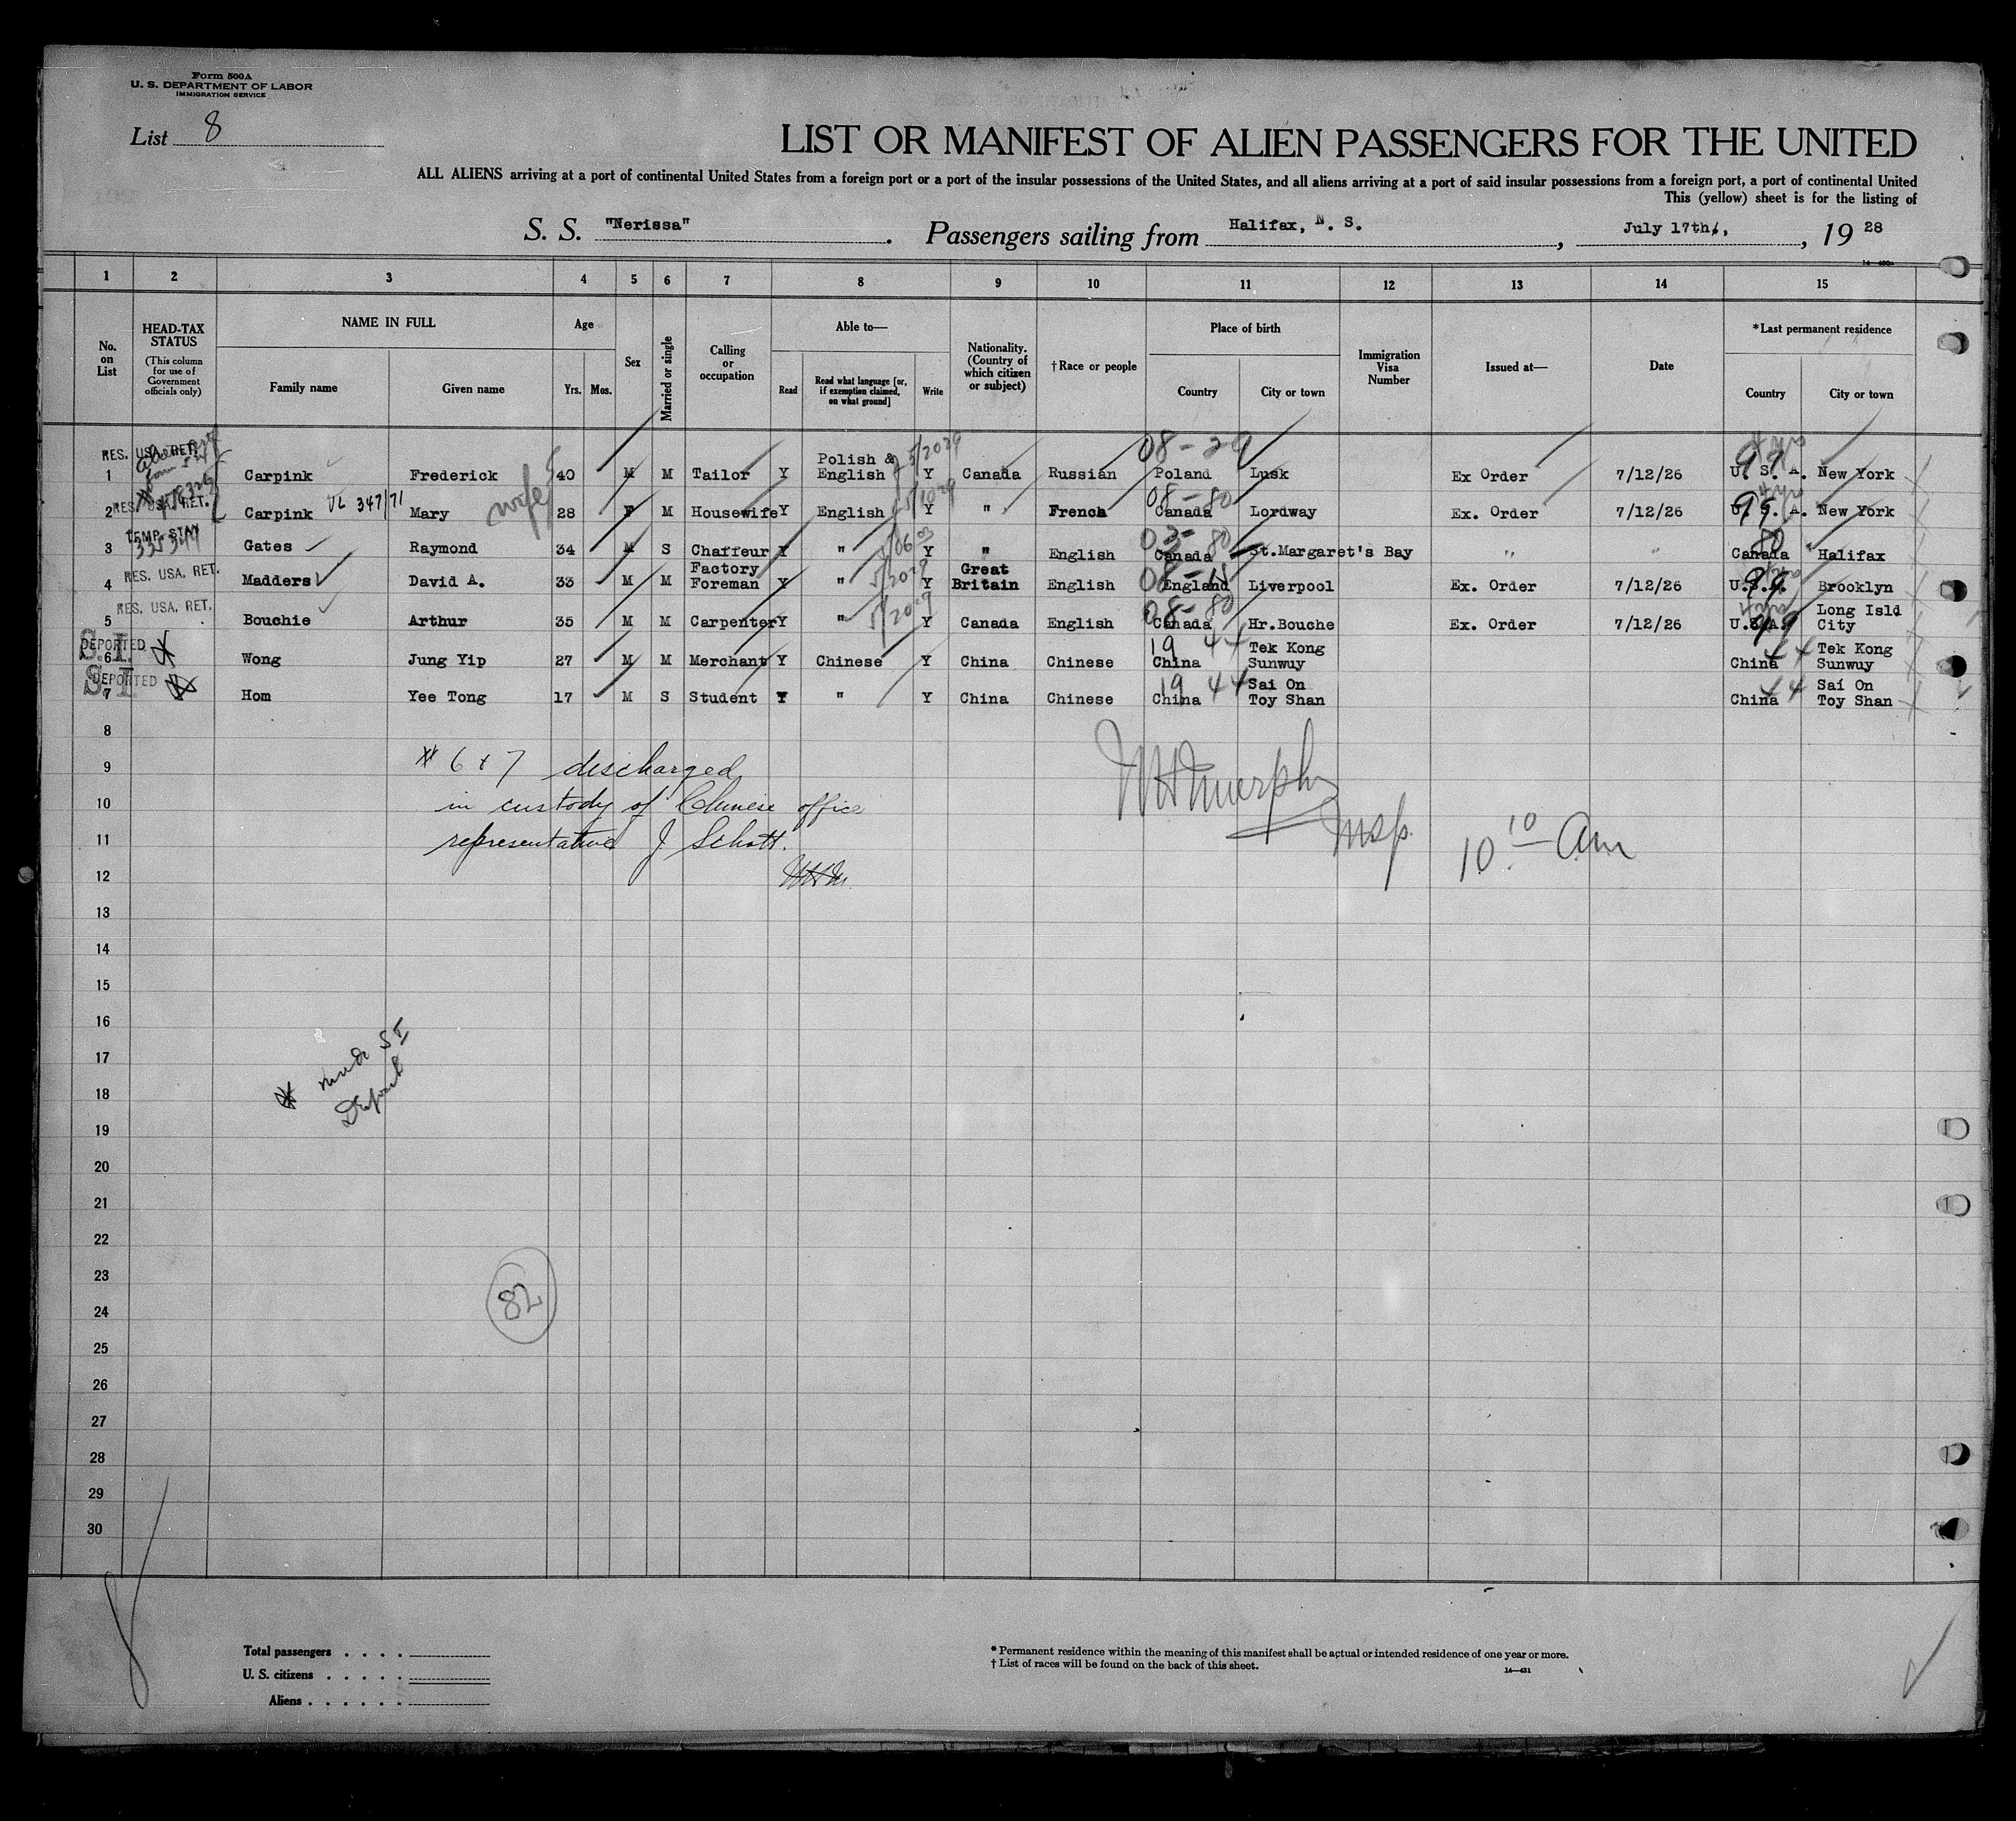 Form 500A
U. S. DEPARTMENT OF LABOR
IMMIGRATION SERVICE
List 8
LIST OR MANIFEST OF ALIEN PASSENGERS FOR THE UNITED
ALL ALIENS arriving at a port of continental United States from a foreign port or a port of the insular possessions of the United States, and all aliens arriving at a port of said insular possessions from a foreign port, a port of continental United
This (yellow) sheet is for the listing of
S. S. "Nerissa". Passengers sailing from Halifax, N. S., July 17th,, 19 28
1 2 3 4 5 6 7 8 9 10 11 12 13 14 15
No. on List
HEAD-TAX STATUS
(This column for use of Government officials only)
NAME IN FULL
Family name
Given name
Age
Yrs. Mos.
Sex
Married or single
Calling or occupation
Able to—
Read
Read what language [or, if exemption claimed, on what ground]
Write
Nationality. (Country of which citizen or subject)
†Race or people
Place of birth
Country
City or town
Immigration Visa Number
Issued at—
Date
*Last permanent residence
Country
City or town
RES. USA. RET.
1 Carpink Frederick 40 M M Tailor Y Polish & English Y Canada Russian Poland Lusk Ex Order 7/12/26 U. S. A. New York
08-29
RES. USA. RET.
2 Carpink VL 347/71 Mary wife 28 F M Housewife Y English Y " French Canada Lordway Ex. Order 7/12/26 U. S. A. New York
08-80
TEMP. STAY
3 Gates Raymond 34 M S Chaffeur Y " Y " English Canada St.Margaret's Bay " " Canada Halifax
80
RES. USA. RET.
4 Madders David A. 33 M M Factory Foreman Y " Y Great Britain English England Liverpool Ex. Order 7/12/26 U.S.A. Brooklyn
RES. USA. RET.
5 Bouchie Arthur 35 M M Carpenter Y " Y Canada English Canada Hr.Bouche Ex. Order 7/12/26 U.S.A. Long Isld City
08-80
DEPORTED
S.I.
6 Wong Jung Yip 27 M M Merchant Y Chinese Y China Chinese China Tek Kong Sunwuy China Tek Kong Sunwuy
19 44 44
DEPORTED
S I
7 Hom Yee Tong 17 M S Student Y " Y China Chinese China Sai On Toy Shan China Sai On Toy Shan
19 44 44
8
9
10
11
12
13
14
15
16
17
18
19
20
21
22
23
24
25
26
27
28
29
30
* 6 + 7 discharged
in custody of Chinese office
representative J Schott.
WHM.
WHMurphy
Insp.
10 10 am
S I
Deport
82
8
Total passengers . . . .
U. S. citizens . . . . .
Aliens . . . . . .
* Permanent residence within the meaning of this manifest shall be actual or intended residence of one year or more.
† List of races will be found on the back of this sheet.
14—431